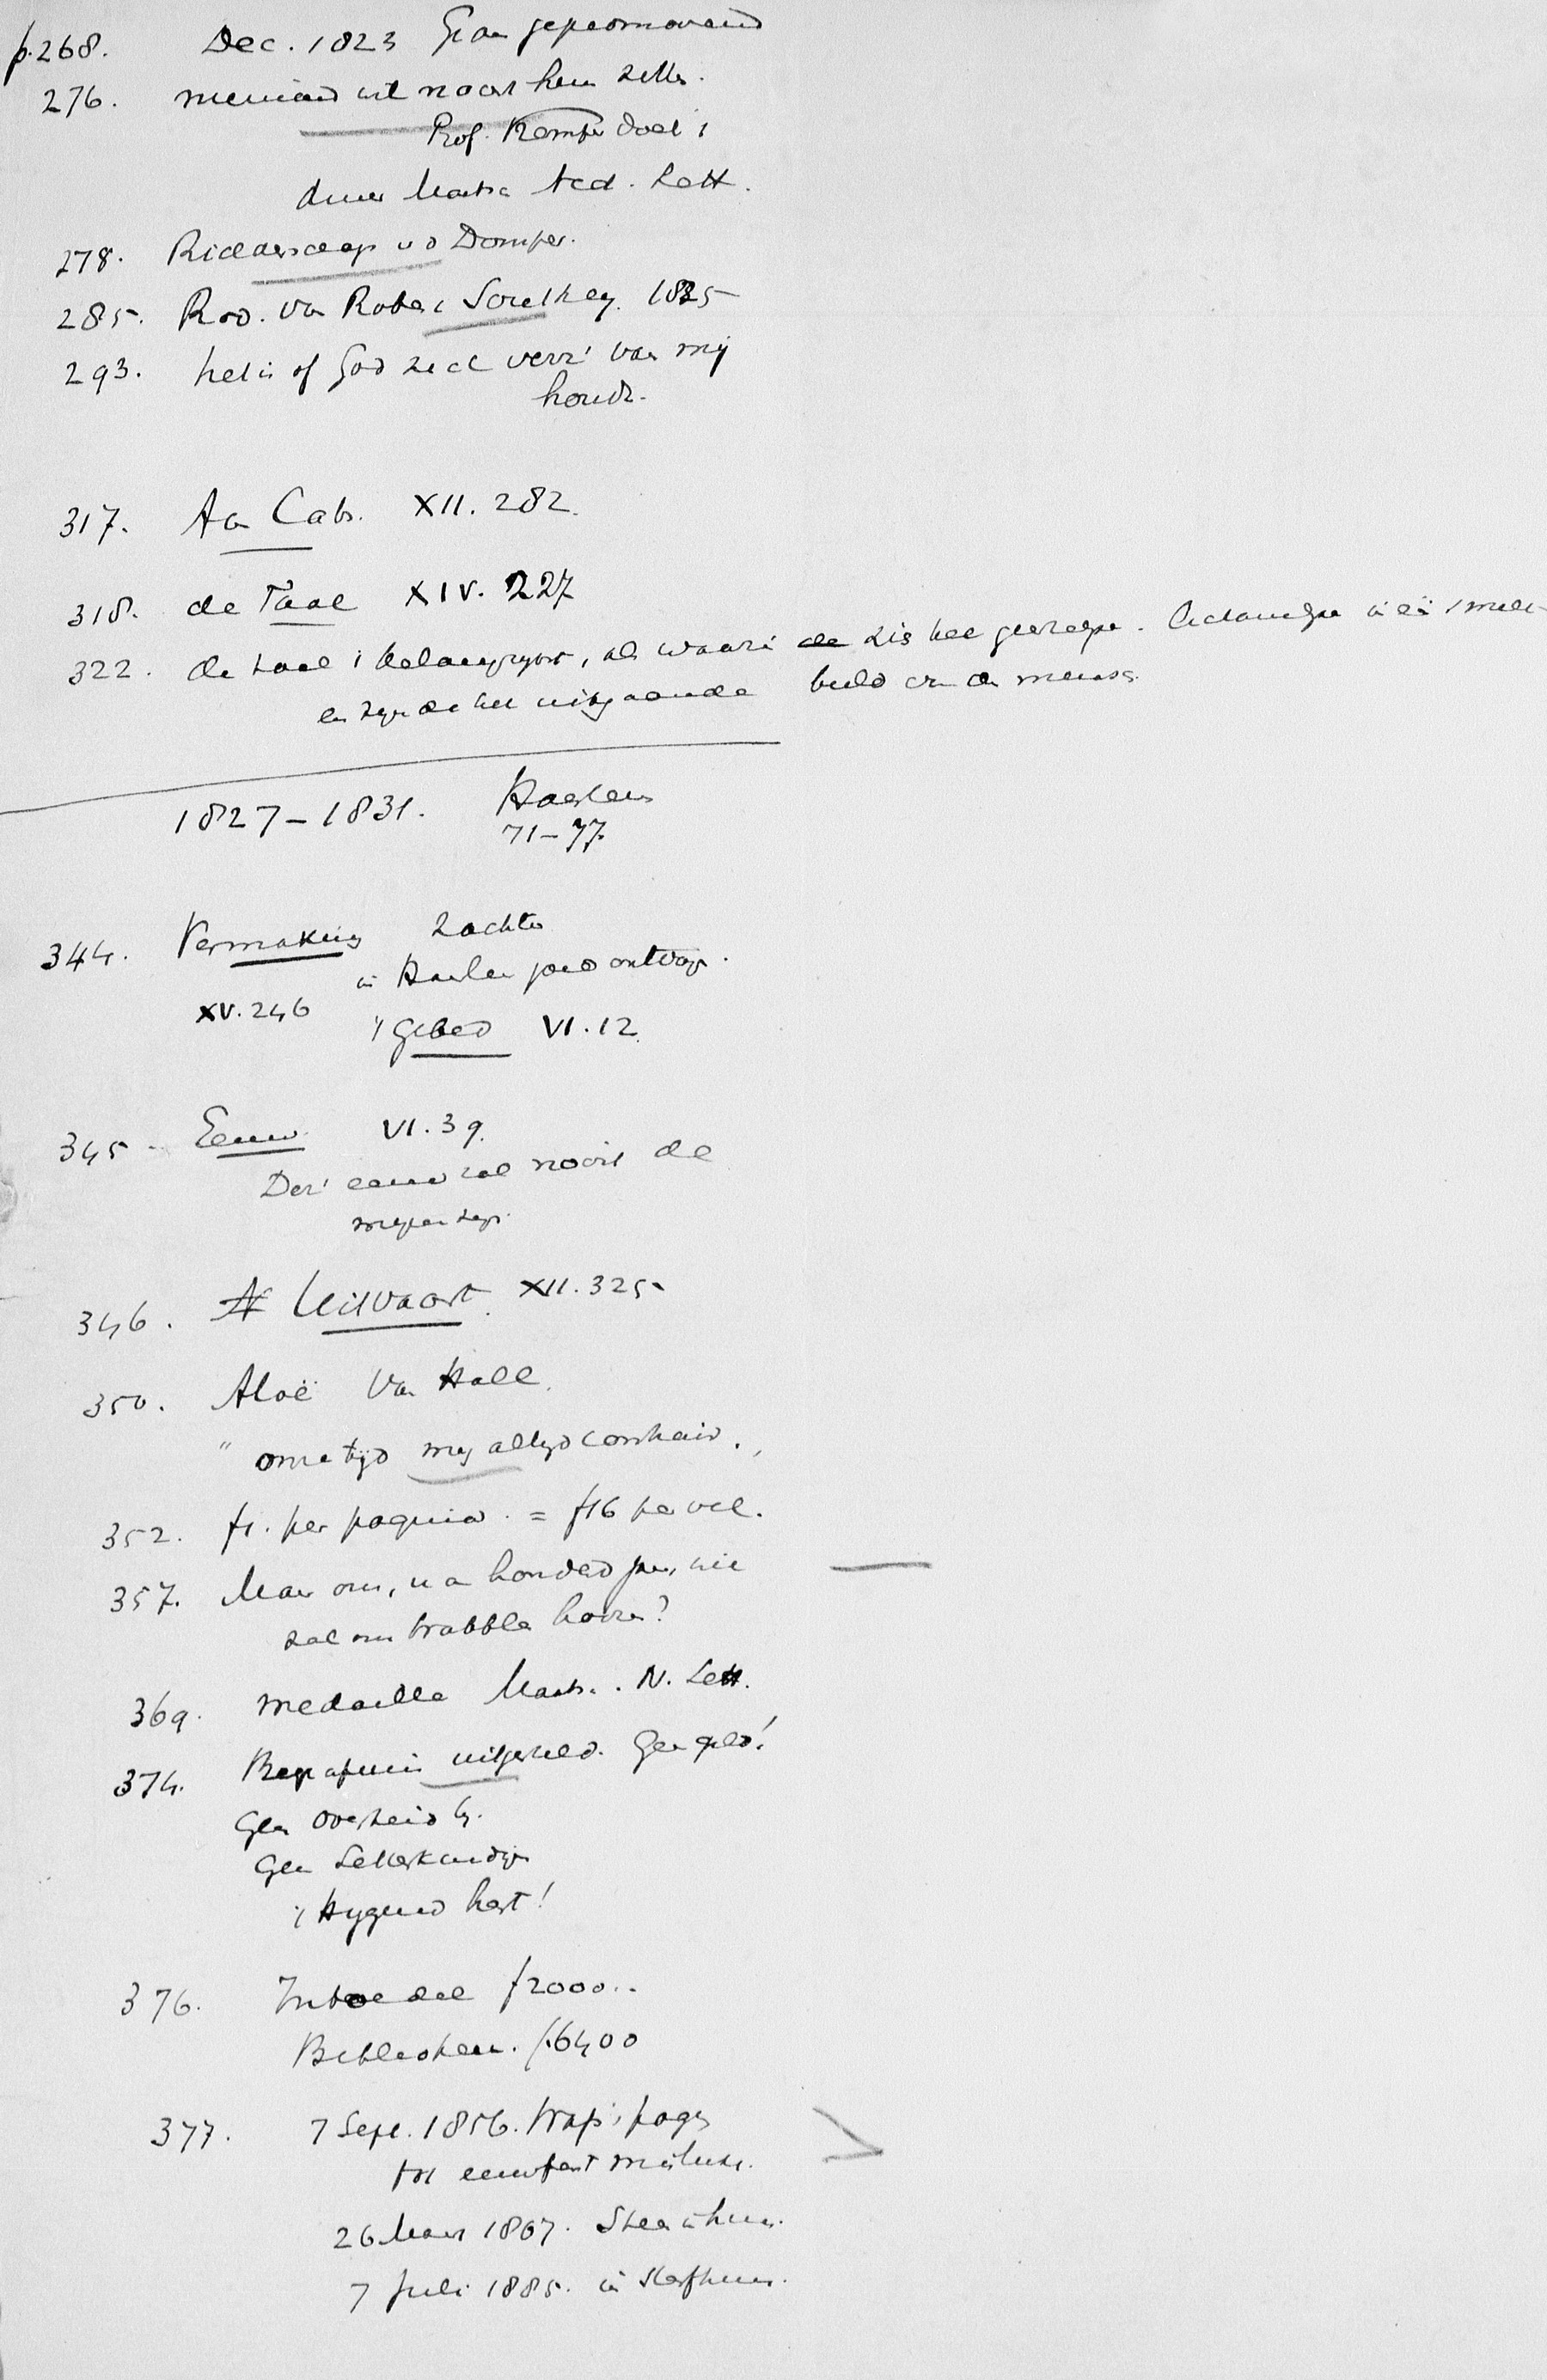 p. 268. Dec. 1823 gepromoveerd
276. niemand wil naast hem zitten.
Prof. Kemper doet 't
door Maats. Ned. Lett.
278. Ridderschap v d Domper.
285. Rod. van Robert Southey. 1825
293. het is of God zich verre van mij
houdt.
317. Aan Cats. XII. 282.
318. de Taal XIV. 227
322. de taal is belangrijkst, als waarin de
en zijnde het uitgaande beeld van den mensch.
1827-1831. Haarlem
71-77.
344. Vermaking zachte
in Haarlem goed ontvangen.
XV. 246 't Gebed VI. 12.
345 - Eeuw VI. 39.
Dez' eeuw zal nooit de
mijne zijn.
346. Uitvaart. XII. 325
350. Aloë Van Hall.
" onze tijd mij altijd
352. f1. per pagina. = f16 per vel.
357. Maar ons, na honderd jaar, wie
zal ons brabblen hooren?
369. medaille Maats. N. Lett.
374. Begrafenis uitgesteld. Geen geld!
Geen overheid bij.
Geen Letterkundigen
't Hijgend hert!
376. Inboedel f2000..
Bibliotheek. f.6400
377. 7 Sept. 1856.
tot eeuwfeest
26 Maart 1867. Steen in huis.
7 Juli 1885. in